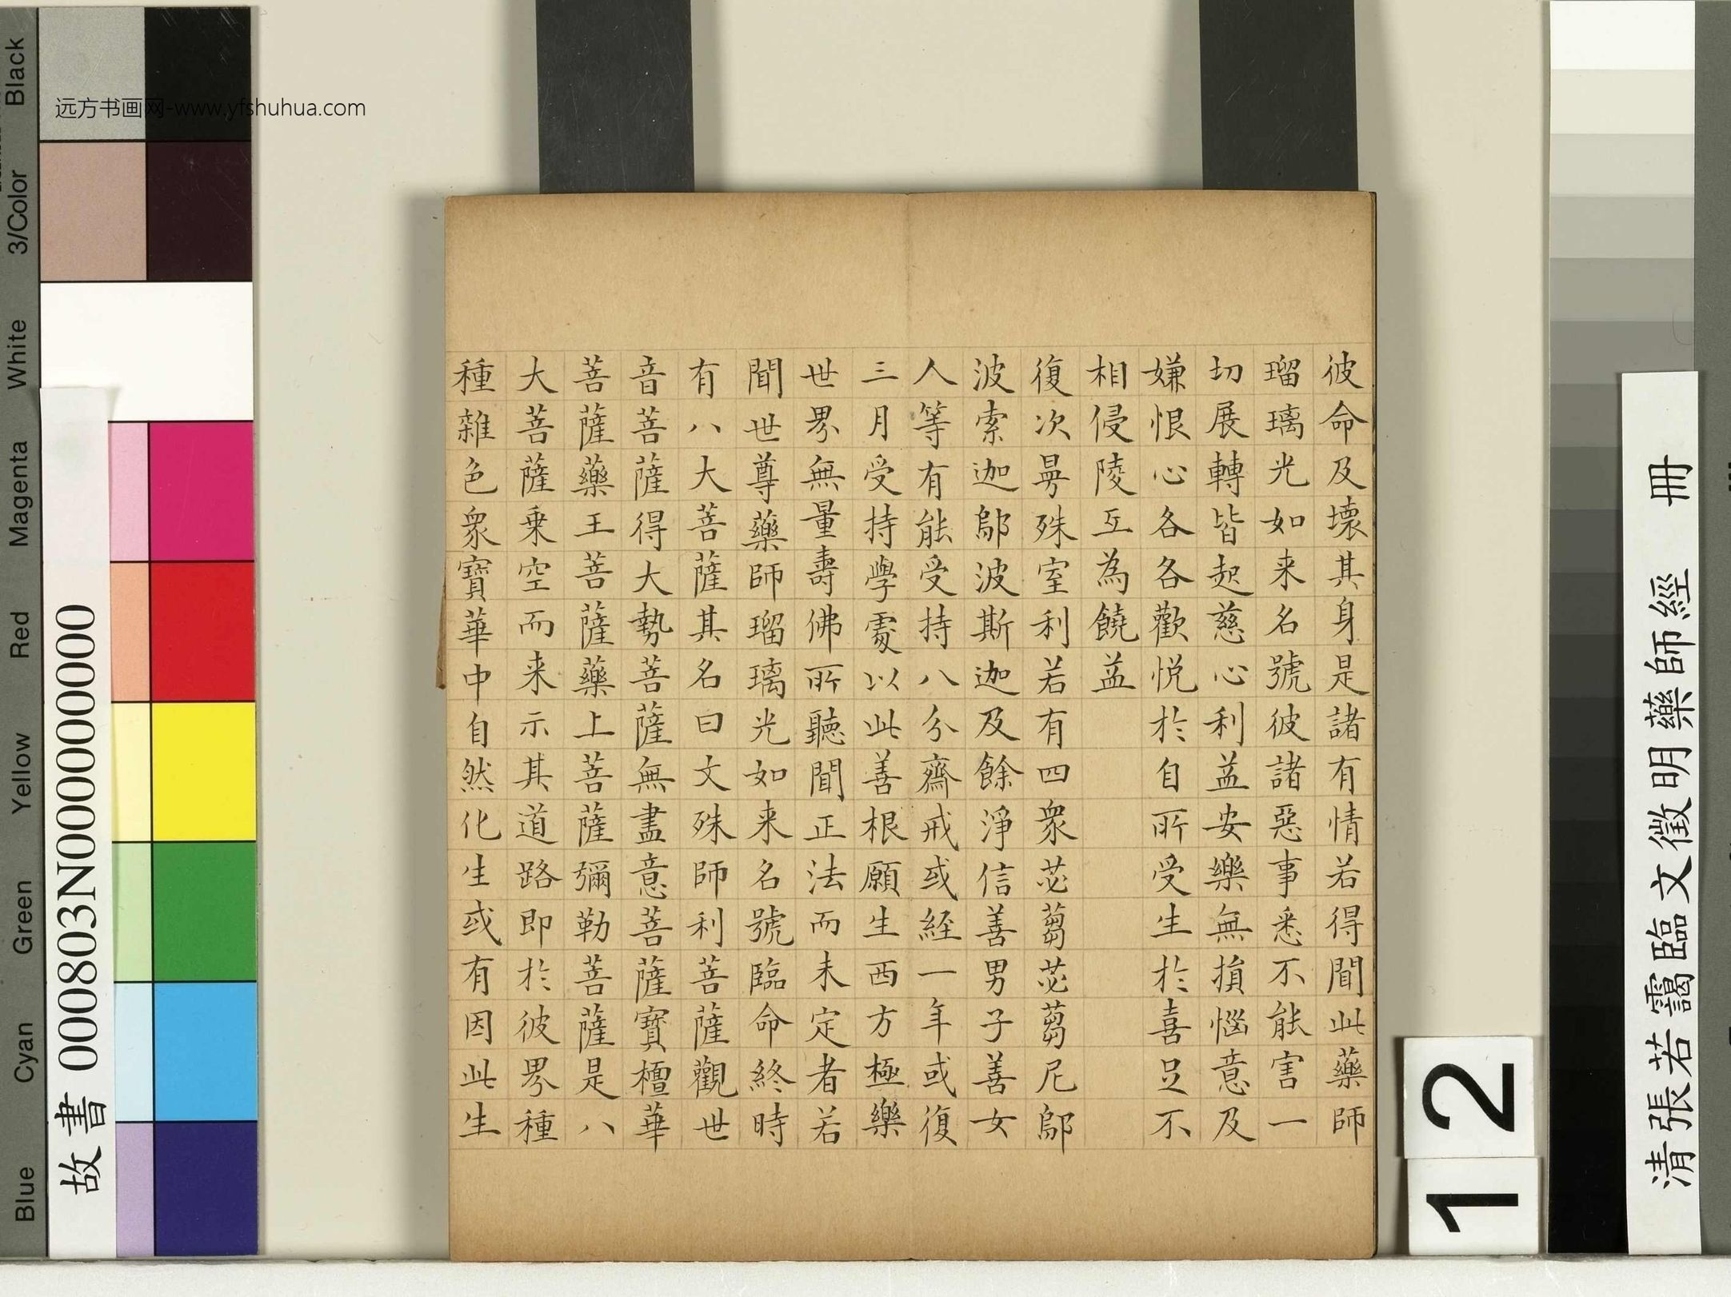 彼命及壞其身是諸有情若得聞此藥師
瑠璃光如来名號彼諸惡事悉不能害一
切展轉皆起慈心利益安樂無損惱意及
嫌恨心各各歡悦於自所受生於喜足不
相侵陵互為饒益
復次曼殊室利若有四衆苾蒭苾蒭尼鄔
波索迦鄔波斯迦及餘淨信善男子善女
人等有能受持八分齋戒或經一年或復
三月受持學處以此善根願生西方極樂
世界無量壽佛所聽聞正法而未定者若
聞世尊藥師瑠璃光如来名號臨命終時
有八大菩薩其名曰文殊師利菩薩觀世
音菩薩得大勢菩薩無盡意菩薩寶檀華
菩薩藥王菩薩藥上菩薩彌勒菩薩是八
大菩薩乘空而来示其道路即於彼界種
種雜色衆寶華中自然化生或有因此生
远方书画网-www.yfshuhua.com
Black
3/Color
White
Magenta
Red
Yellow
Green
Cyan
Blue
故書 000803N000000000
12
清張若靄臨文徵明藥師經 冊